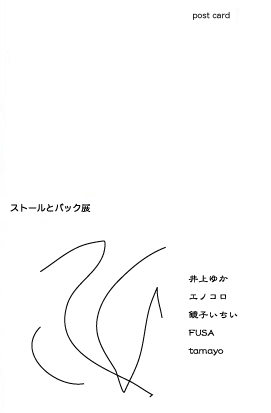 post card
ストールとバック展
井上ゆか
エノコロ
鏡子いちい
FUSA
tamayo